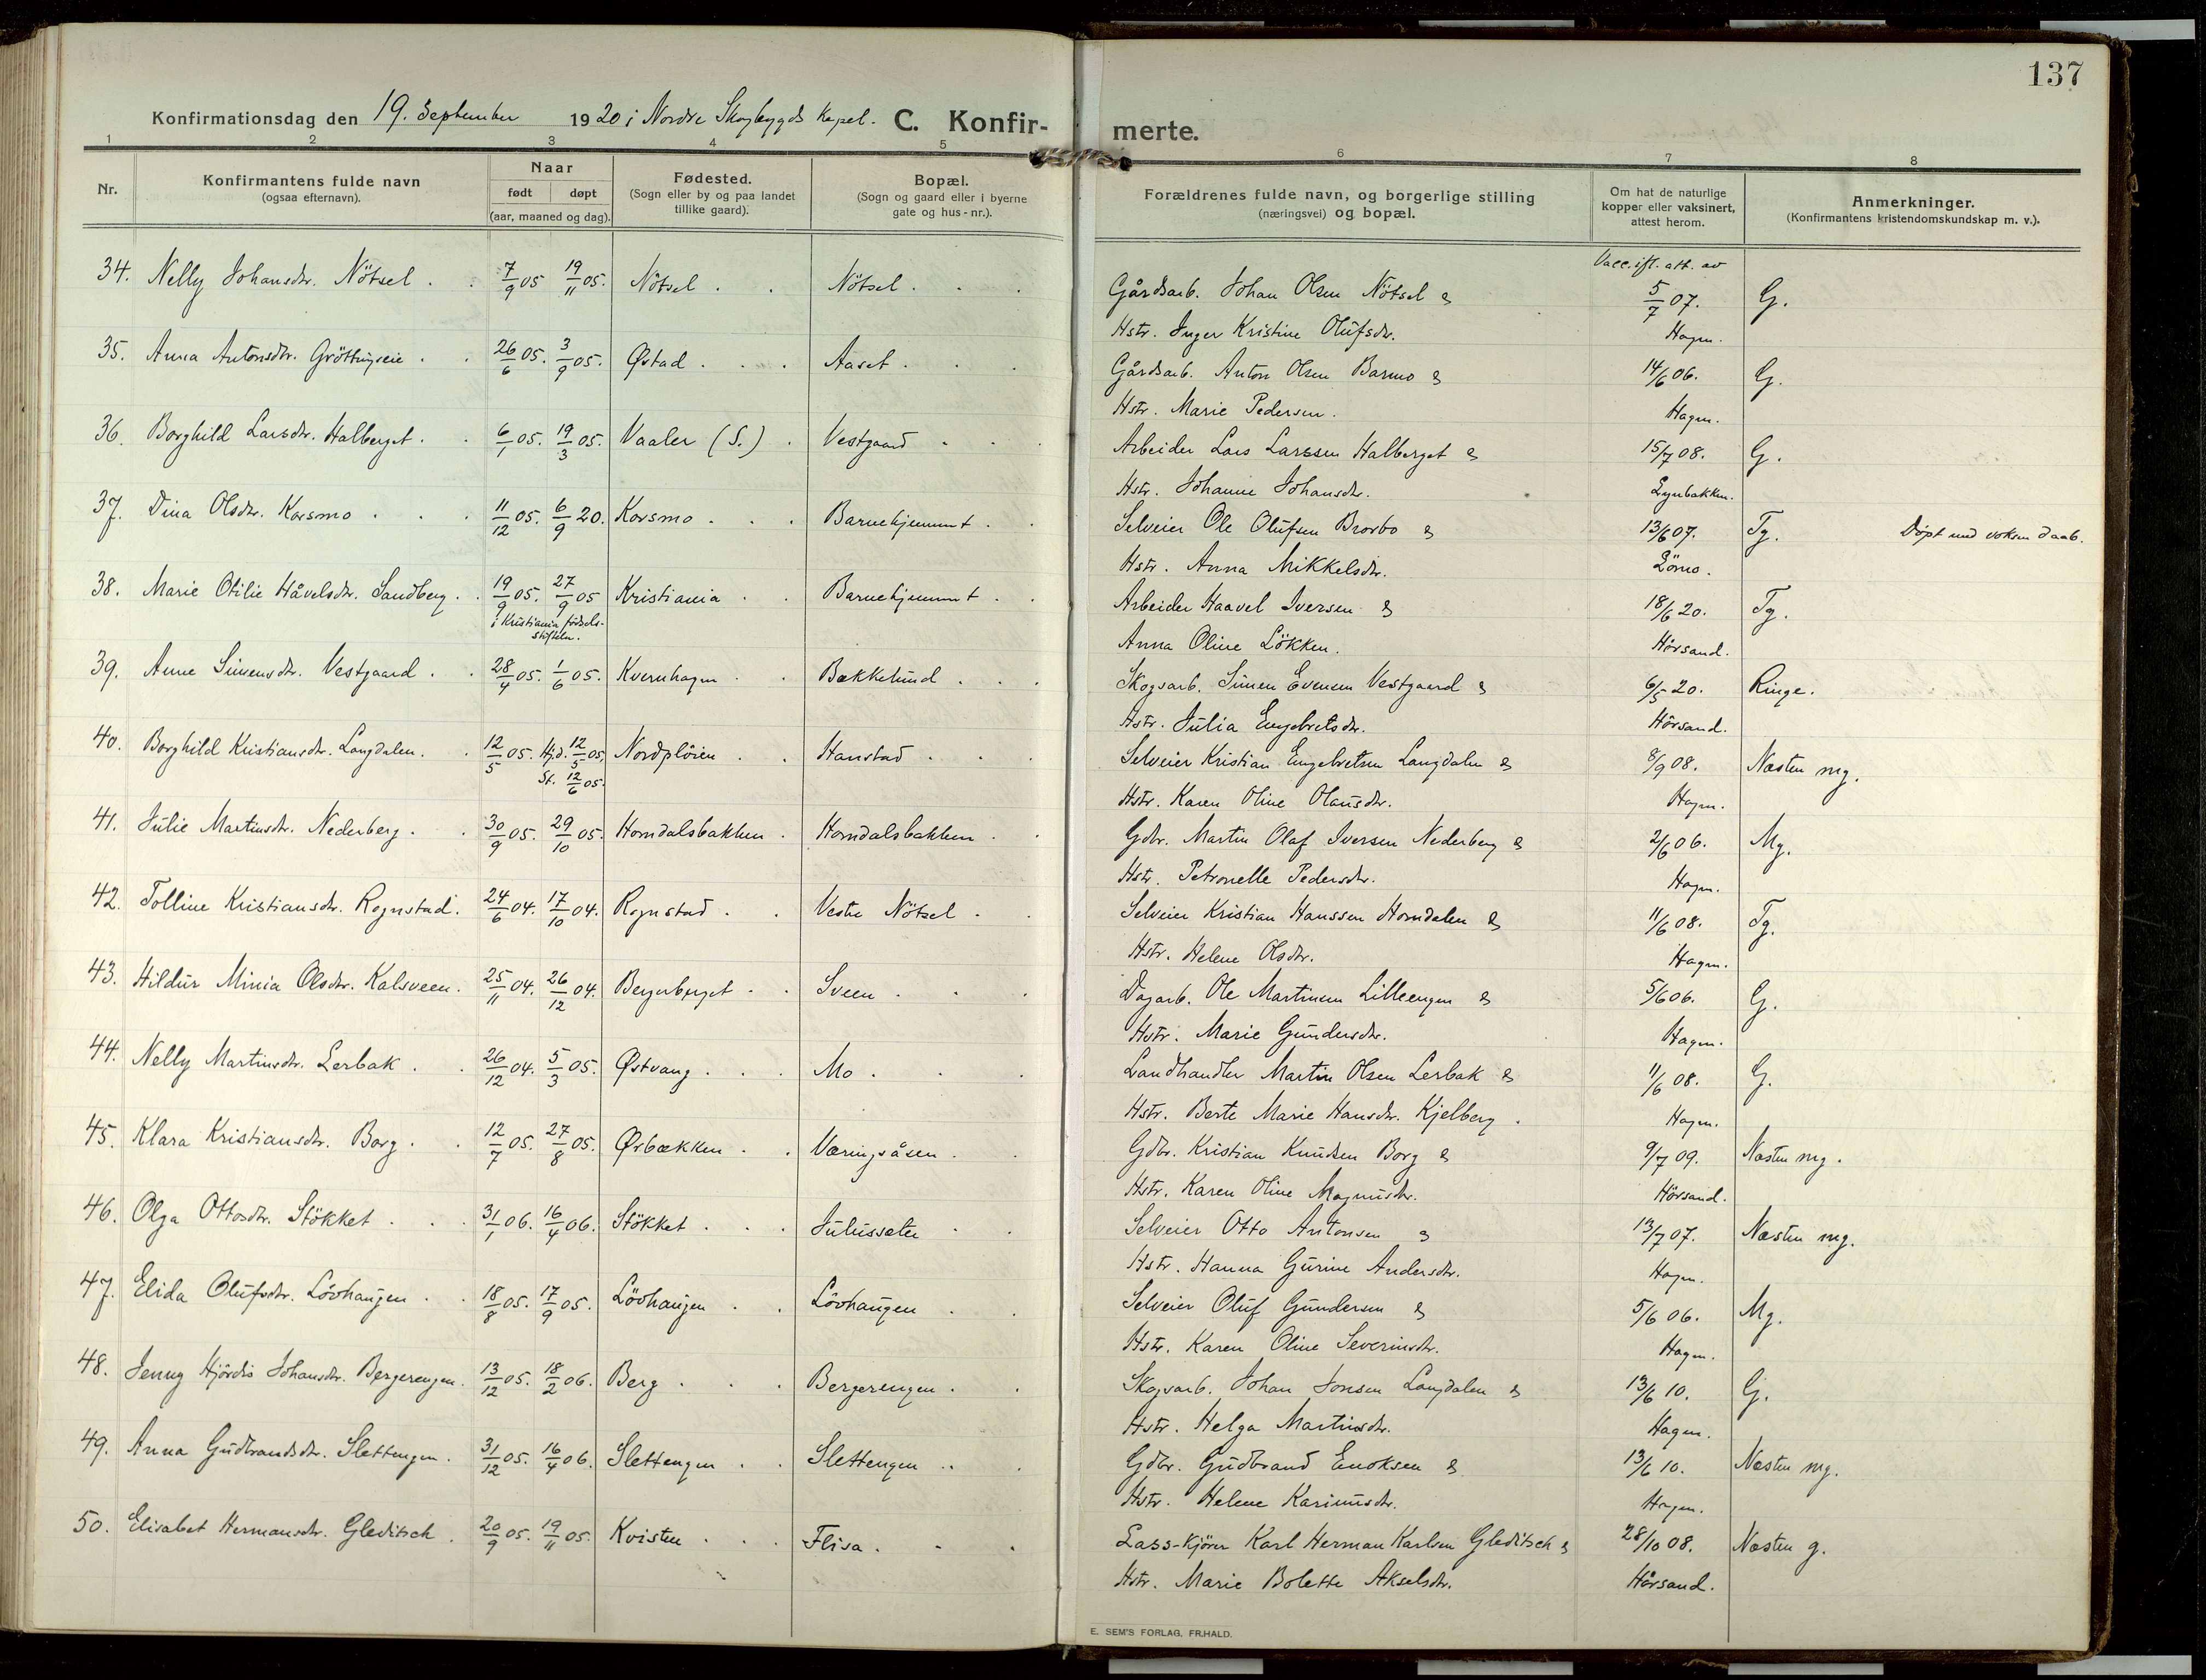 137
Konfirmationsdag den 19. September 1920 i Nordre Skogbygds Kapel. C. Konfir- merte.
1 2 3 4 5 6 7 8
Nr.
Konfirmantens fulde navn
(ogsaa efternavn).
Naar
født døpt
(aar, maaned og dag).
Fødested.
(Sogn eller by og paa landet
tillike gaard).
Bopæl.
(Sogn og gaard eller i byerne
gate og hus-nr.).
Forældrenes fulde navn, og borgerlige stilling
(næringsvei) og bopæl.
Om hat de naturlige
kopper eller vaksinert,
attest herom.
Anmerkninger.
(Konfirmantens kristendomskundskap m. v.).
Vacc. ifl. att. av
34. Nelly Johansdtr. Nötsel . . 7/9 05 19/11 05. Nötsel . . Nötsel . . . Gårdsarb. Johan Olsen Nötsel & 5/7 07. G.
Hstr. Inger Kristine Olufsdtr. Hagen.
35. Anna Antonsdtr. Gröttingseie . . 26/6 05. 3/9 05. Østad . . . Aaset . . . Gårdsarb. Anton Olsen Barmo & 14/6 06. G.
Hstr. Marie Pedersen. Hagen.
36. Borghild Larsdtr. Halberget . . 6/1 05. 19/3 05. Vaaler (S.) . Vestgaard . . . Arbeider Lars Larssen Halberget & 15/7 08. G.
Hstr. Johanne Johansdtr. Lynbakken.
37. Dina Olsdtr. Korsmo . . . 11/12 05. 6/9 20. Korsmo . . . Barnehjemmet . . Selveier Ole Olufsen Brorbo & 13/6 07. Tg. Döpt med voksen daab.
Hstr. Anna Mikkelsdtr. Lömo.
38. Marie Otilie Håvelsdtr. Sandberg . . 19/9 05. 27/9 05 Kristiania . . Barnehjemmet . . Arbeider Haavel Iversen & 18/6 20. Tg.
i Kristiania födsels-
stiftelse.
Anna Oline Lökken. Hörsand.
39. Anne Simensdtr. Vestgaard . . 28/4 05. 1/6 05. Kvernhagen . . Bækkelund . . . Skogsarb. Simen Evensen Vestgaard & 6/5 20. Ringe.
Hstr. Julia Engebretsdtr. Hörsand.
40. Borghild Kristiansdtr. Langdalen . . 12/5 05. Hj.d. 12/5 05, Nordplöien . . Hanstad . . . Selveier Kristian Engebretsen Langdalen & 8/9 08. Næsten mg.
St. 12/6 05.
Hstr. Karen Oline Olausdtr. Hagen.
41. Julie Martinsdtr. Nederberg . . 30/9 05. 29/10 05. Horndalsbakken . Horndalsbakken . . Gdbr. Martin Olaf Iversen Nederberg & 2/6 06. Mg.
Hstr. Petronelle Pedersdtr. Hagen.
42. Tolline Kristiansdtr. Rognstad. 24/6 04. 17/10 04. Rognstad . . Vestre Nötsel . . Selveier Kristian Hanssen Horndalen & 11/6 08. Tg.
Hstr. Helene Olsdtr. Hagen.
43. Hildur Minia Olsdtr. Kalsveen. 25/11 04. 26/12 04. Bergerberget . . Sveen . . . Dagarb. Ole Martinsen Lilleengen & 5/6 06. G.
Hstr. Marie Gundersdtr. Hagen.
44. Nelly Martinsdtr. Lerbak . . 26/12 04. 5/3 05. Østvang . . . Mo . . . Landhandler Martin Olsen Lerbak & 11/6 08. G.
Hstr. Berte Marie Hansdtr. Kjelberg . Hagen.
45. Klara Kristiansdtr. Borg . . 12/7 05. 27/8 05. Ørbækken . . Væringsåsen . . Gdbr. Kristian Knudsen Borg & 9/7 09. Næsten mg.
Hstr. Karen Oline Magnusdtr. Hörsand.
46. Olga Ottosdtr. Stökket . . . 31/1 06. 16/4 06. Stökket . . . Julussæter . . Selveier Otto Antonsen & 13/7 07. Næsten mg.
Hstr. Hanna Gurine Andersdtr. Hagen.
47. Elida Olufsdtr. Lövhaugen . . 18/8 05. 17/9 05. Lövhaugen . . Lövhaugen . . Selveier Oluf Gundersen & 5/6 06. Mg.
Hstr. Karen Oline Severinsdtr. Hagen.
48. Jenny Hjördis Johansdtr. Bergerengen. 13/12 05. 18/2 06. Berg . . . Bergerengen . . Skogsarb. Johan Jonsen Langdalen & 13/6 10. G.
Hstr. Helga Martinsdtr. Hagen.
49. Anna Gudbrandsdtr. Slettengen. 31/12 05. 16/4 06. Slettengen . . Slettengen . . Gdbr. Gudbrand Enoksen & 13/6 10. Næsten mg.
Hstr. Helene Kariusdtr. Hagen.
50. Elisabet Hermansdtr. Gleditsch . 20/9 05. 19/11 05. Kvisten . . . Flisa . . . Lass-kjörer Karl Herman Karlsen Gleditsch & 28/10 08. Næsten g.
Hstr. Marie Bolette Akselsdtr. Hörsand.
E. SEM'S FORLAG, FR.HALD.